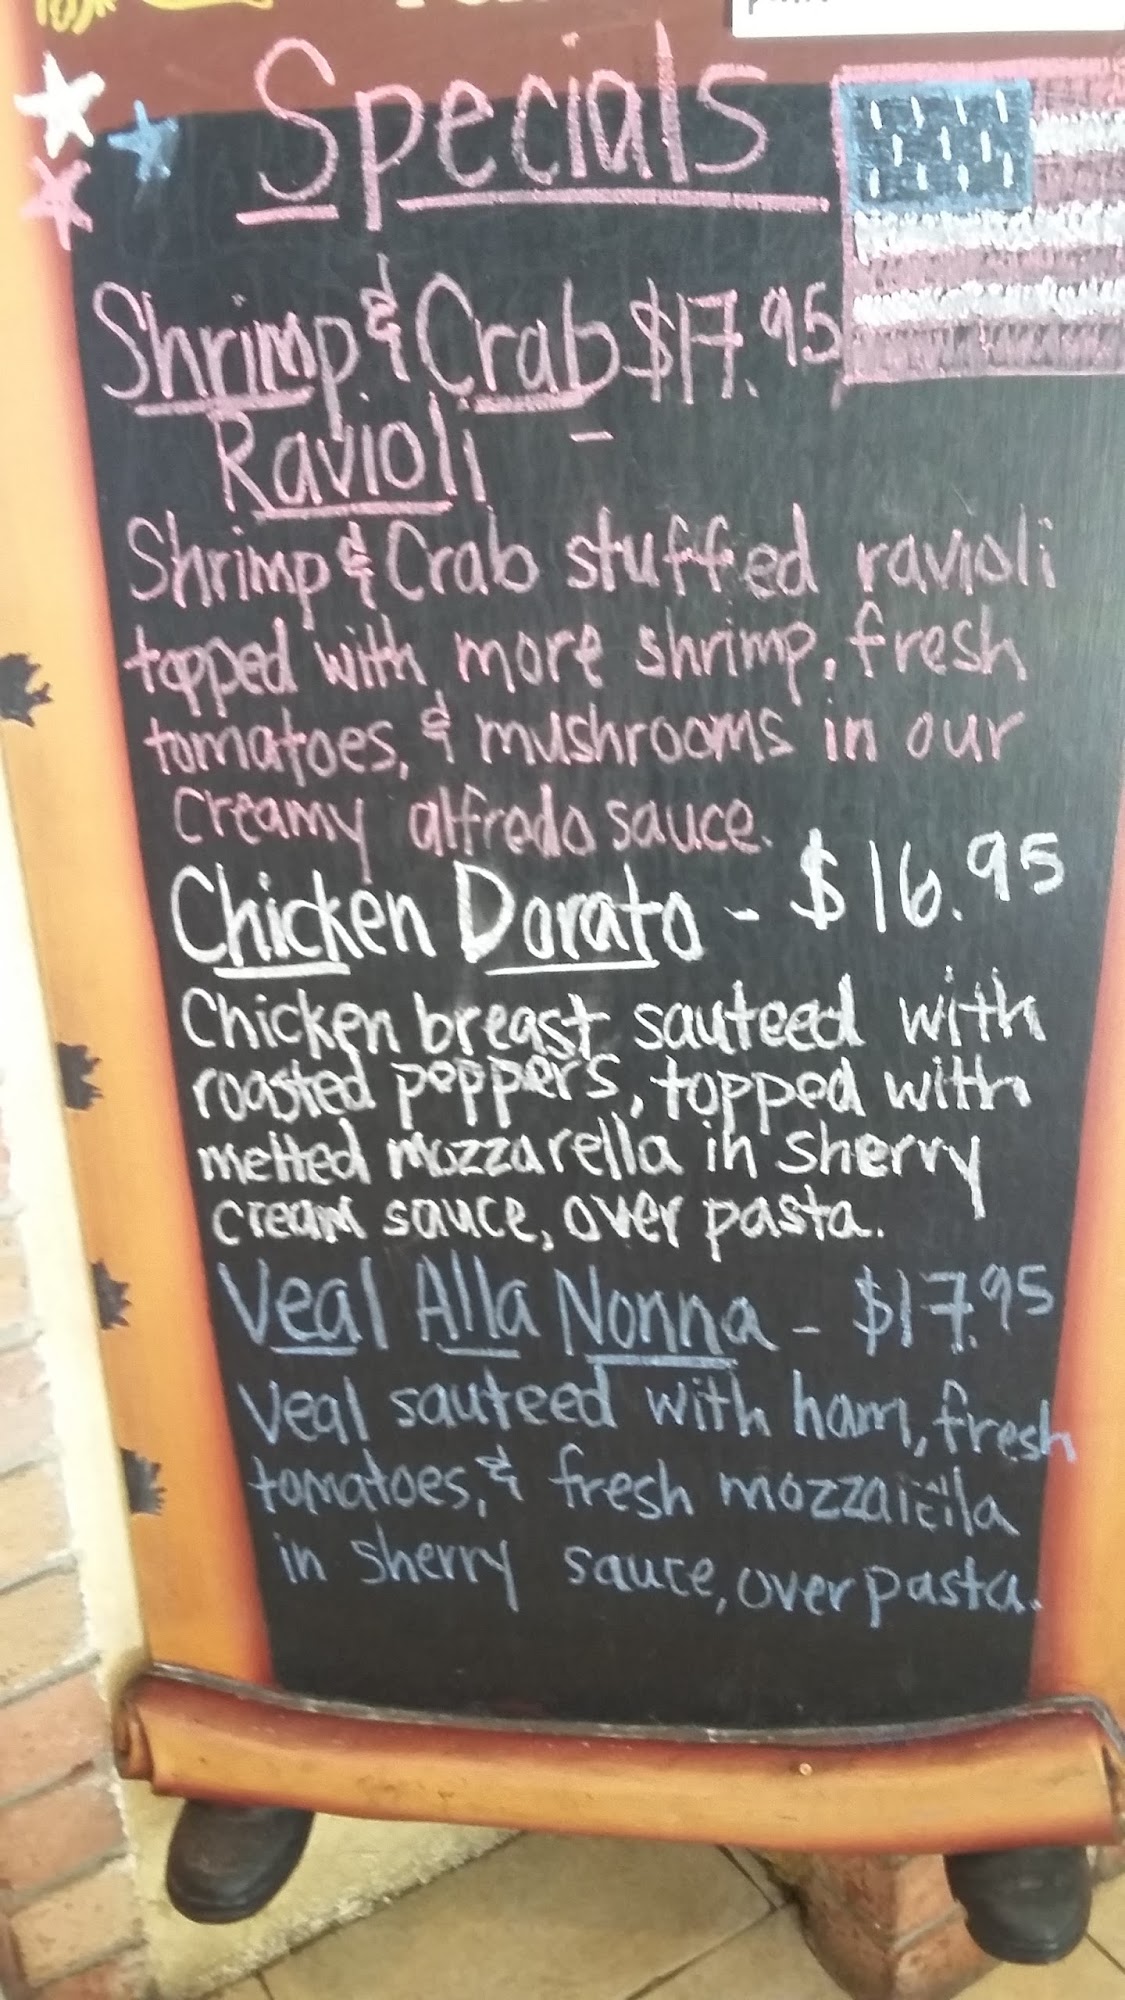 Specials
Shrimp & Crab $17.95
Ravioli -
Shrimp & Crab stuffed ravioli
topped with more shrimp, fresh
tomatoes, & mushrooms in our
creamy alfredo sauce.
Chicken Dorato - $16.95
Chicken breast sauteed with
roasted peppers, topped with
melted mozzarella in sherry
cream sauce, over pasta.
Veal Alla Nonna - $17.95
Veal sauteed with ham, fresh
tomatoes, & fresh mozzarella
in sherry sauce, over pasta.